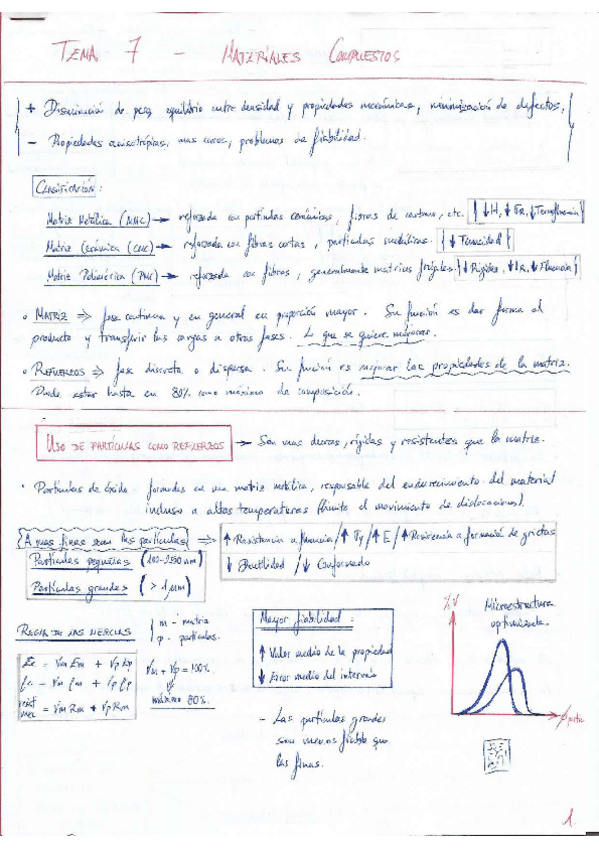 TEMA 7 - MATERIALES COMPUESTOS
+ Disminución de peso, equilibrio entre densidad y propiedades mecánicas, minimización de defectos.
- Propiedades anisotrópicas, mas caros, problemas de fiabilidad.
CLASIFICACIÓN:
Matriz Metálica (MMC) → reforzada con partículas cerámicas, fibras de carbono, etc. ↓H, ↓σR, ↓Termofluencia
Matriz Cerámica (CMC) → reforzada con fibras cortas, partículas metálicas. ↓Tenacidad
Matriz Polimérica (PMC) → reforzada con fibras, generalmente matrices frágiles. ↓Rigidez, ↓σR, ↓Fluencia
• MATRIZ ⇒ fase continua y en general en proporción mayor. Su función es dar forma al
producto y transferir las cargas a otras fases. Lo que se quiere mejorar.
• REFUERZOS ⇒ fase discreta o dispersa. Su función es mejorar las propiedades de la matriz.
Puede estar hasta en 80% como máximo de composición.
USO DE PARTÍCULAS COMO REFUERZOS → Son mas duras, rígidas y resistentes que la matriz.
• Partículas de óxido formadas en una matriz metálica, responsable del endurecimiento del material
incluso a altas temperaturas (limita el movimiento de dislocaciones).
A mas finas sean las partículas ⇒ ↑Resistencia a fluencia / ↑σy / ↑E / ↑Resistencia a formación de grietas
↓Ductilidad / ↓Conformado
Partículas pequeñas (100-2500 nm)
Partículas grandes (> 1 μm)
REGLA DE LAS MEZCLAS
m - matriz
p - partículas.
Ec = Vm Em + Vp Ep
ρc = Vm ρm + Vp ρp
Vm Rm + Vp Rm
Vm + Vp = 100%
máximo 80%.
Mayor fiabilidad:
↑ Valor medio de la propiedad
↓ Error medio del intervalo
- Las partículas grandes
son menos fiable que
las finas.
%V
Microestructura
optimizada.
1.